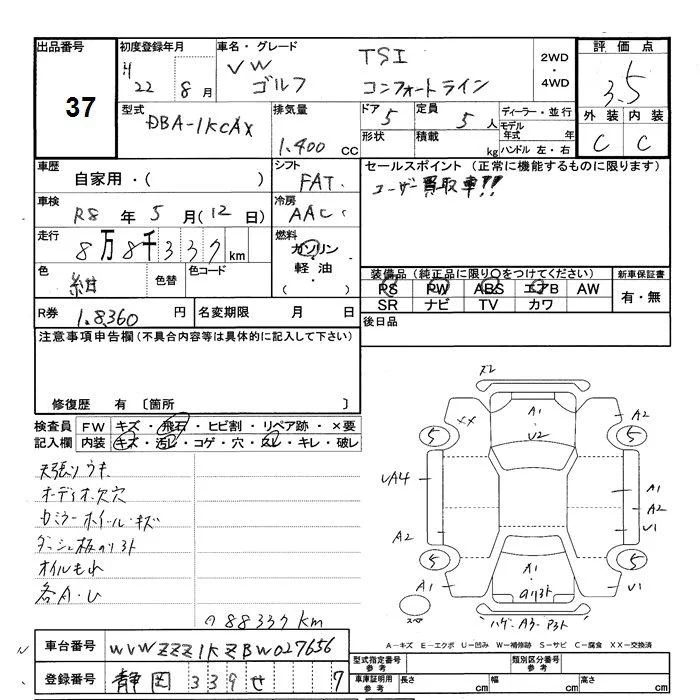 出品番号
37
初度登録年月
H 22 年 8 月
車名・グレード
VW ゴルフ
TSI
コンフォートライン
2WD
・
4WD
評価点
3.5
外装 内装
C C
型式
DBA-1KCAX
排気量
1.400 CC
ドア 5
形状
定員 5 人
積載 kg
ディーラー・並行
モデル年式 年
ハンドル 左・右
車歴
自家用・( )
シフト
FAT.
車検
R8 年 5 月 (12 日)
冷房
AAC
走行
8万8千337 km
燃料
ガソリン
・
軽油
( )
色
紺
色替
色コード
R券
1.8360 円
名変期限 月 日
セールスポイント (正常に機能するものに限ります)
ユーザー買取車!!
装備品 (純正品に限り〇をつけてください)
PS PW ABS エアB AW
SR ナビ TV カワ
新車保証書
有・無
後日品
注意事項申告欄 (不具合内容等は具体的に記入して下さい)
修復歴 有 〔箇所 〕
検査員
記入欄
FW キズ・飛石・ヒビ割・リペア跡・×要
内装 キズ・汚レ・コゲ・穴・スレ・キレ・破レ
天張りウキ
オーディオ欠穴
カミラーホイール・キズ
ダッシュ板のリヨト
オイルもれ
各A・U
88337 km
ズレ
A1
・
U2
XX
A2
5
5
UA4
A1
A2
U1
A2
5
5
A1
A1
・
U1
スペア
ハゲ・A3
A-キズ E-エクボ U-凹み W-補修跡 S-サビ C-腐食 XX-交換済
車台番号
WVWZZZ1KZBW027656
登録番号
静岡 339 せ 7
型式指定番号
参考
類別区分番号
参考
車庫証明用
参考
長さ cm
幅 cm
高さ cm